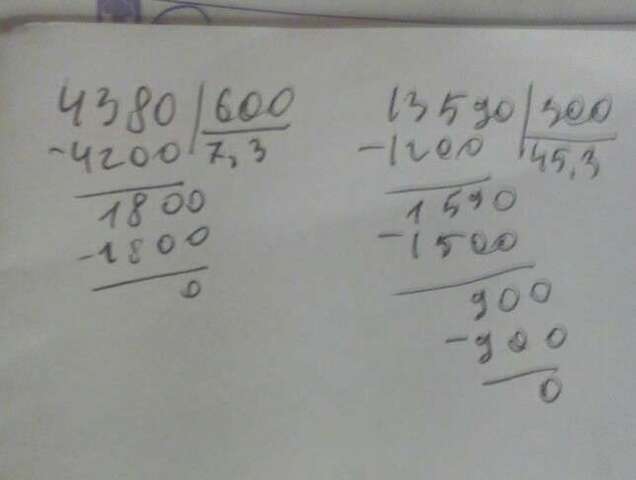 4380 | 600
-4200 | 7,3
1800
-1800
0
13590 | 300
-1200 | 45,3
1590
-1500
900
-900
0